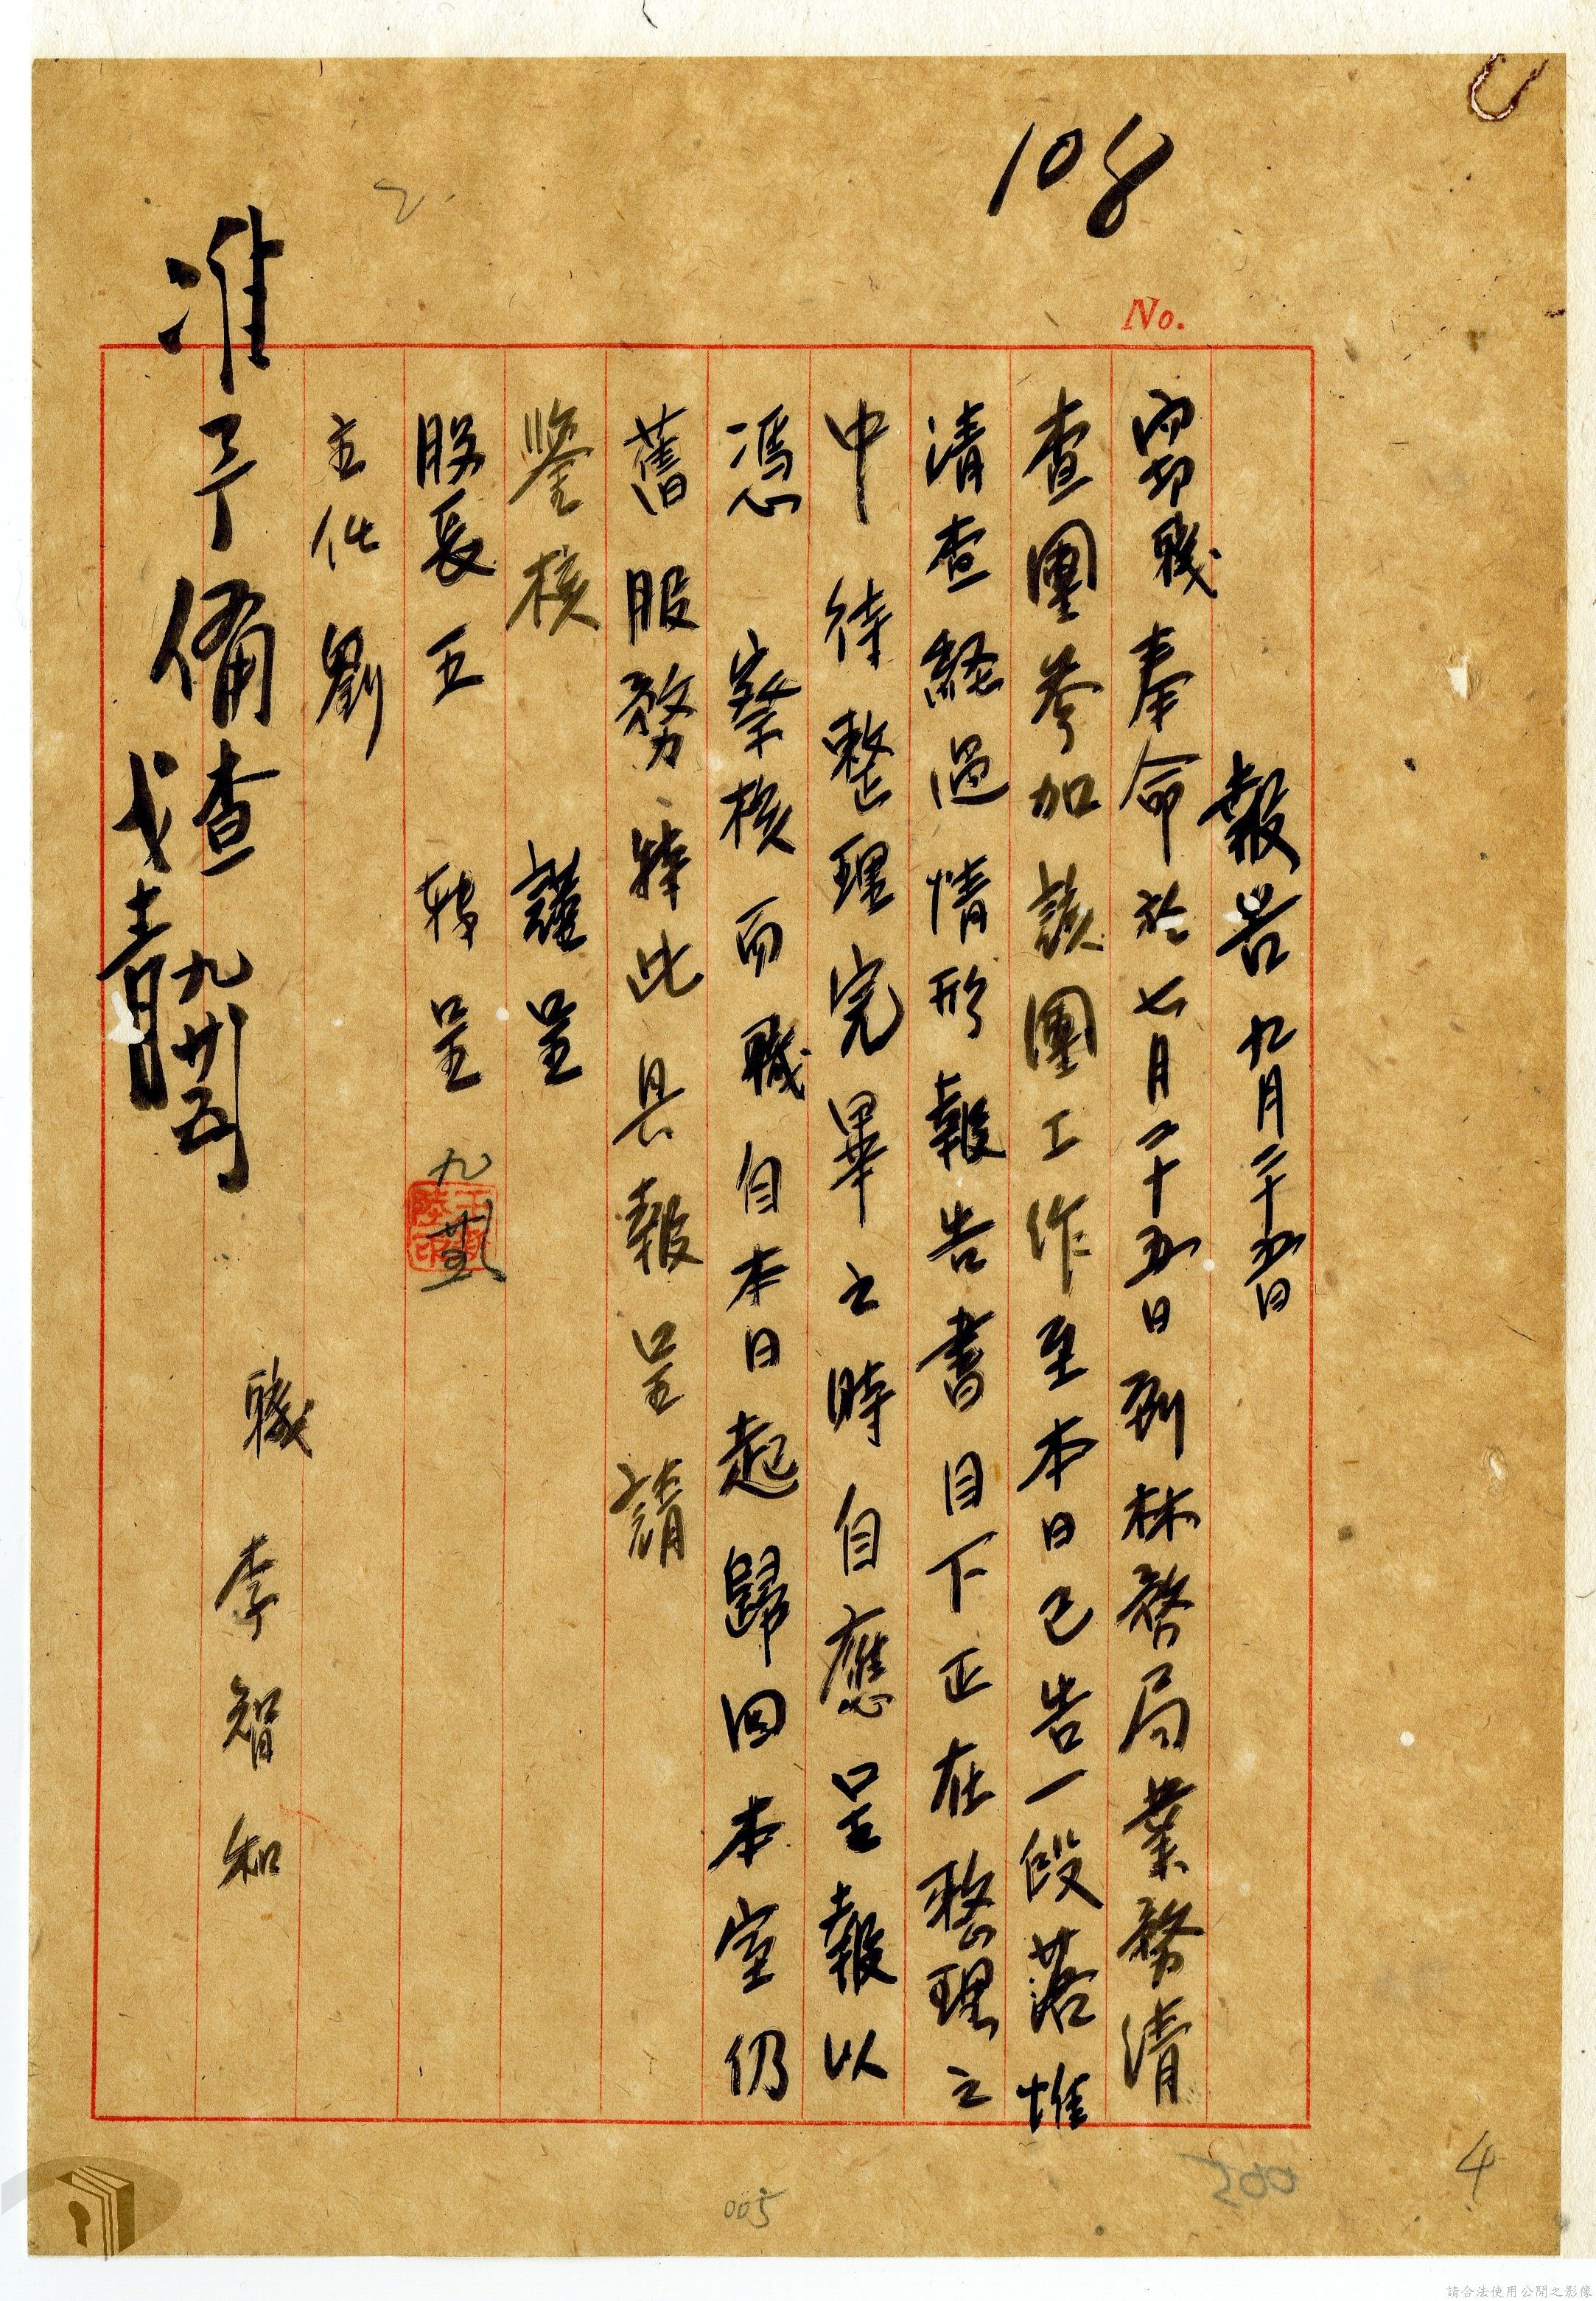 108
No.
報告 九月二十五日
竊職奉命於七月二十五日到林務局業務清
查團參加該團工作至本日已告一段落惟
清查經過情形報告書目下正在整理之
中待整理完畢之時自應呈報以
憑 察核而職自本日起歸回本室仍
舊服務特此具報呈請
鑒核 謹呈
股長王 轉呈 九
主任劉
職 李智和
准予備查
九廿五
2.
4
005
200
請合法使用公開之影像